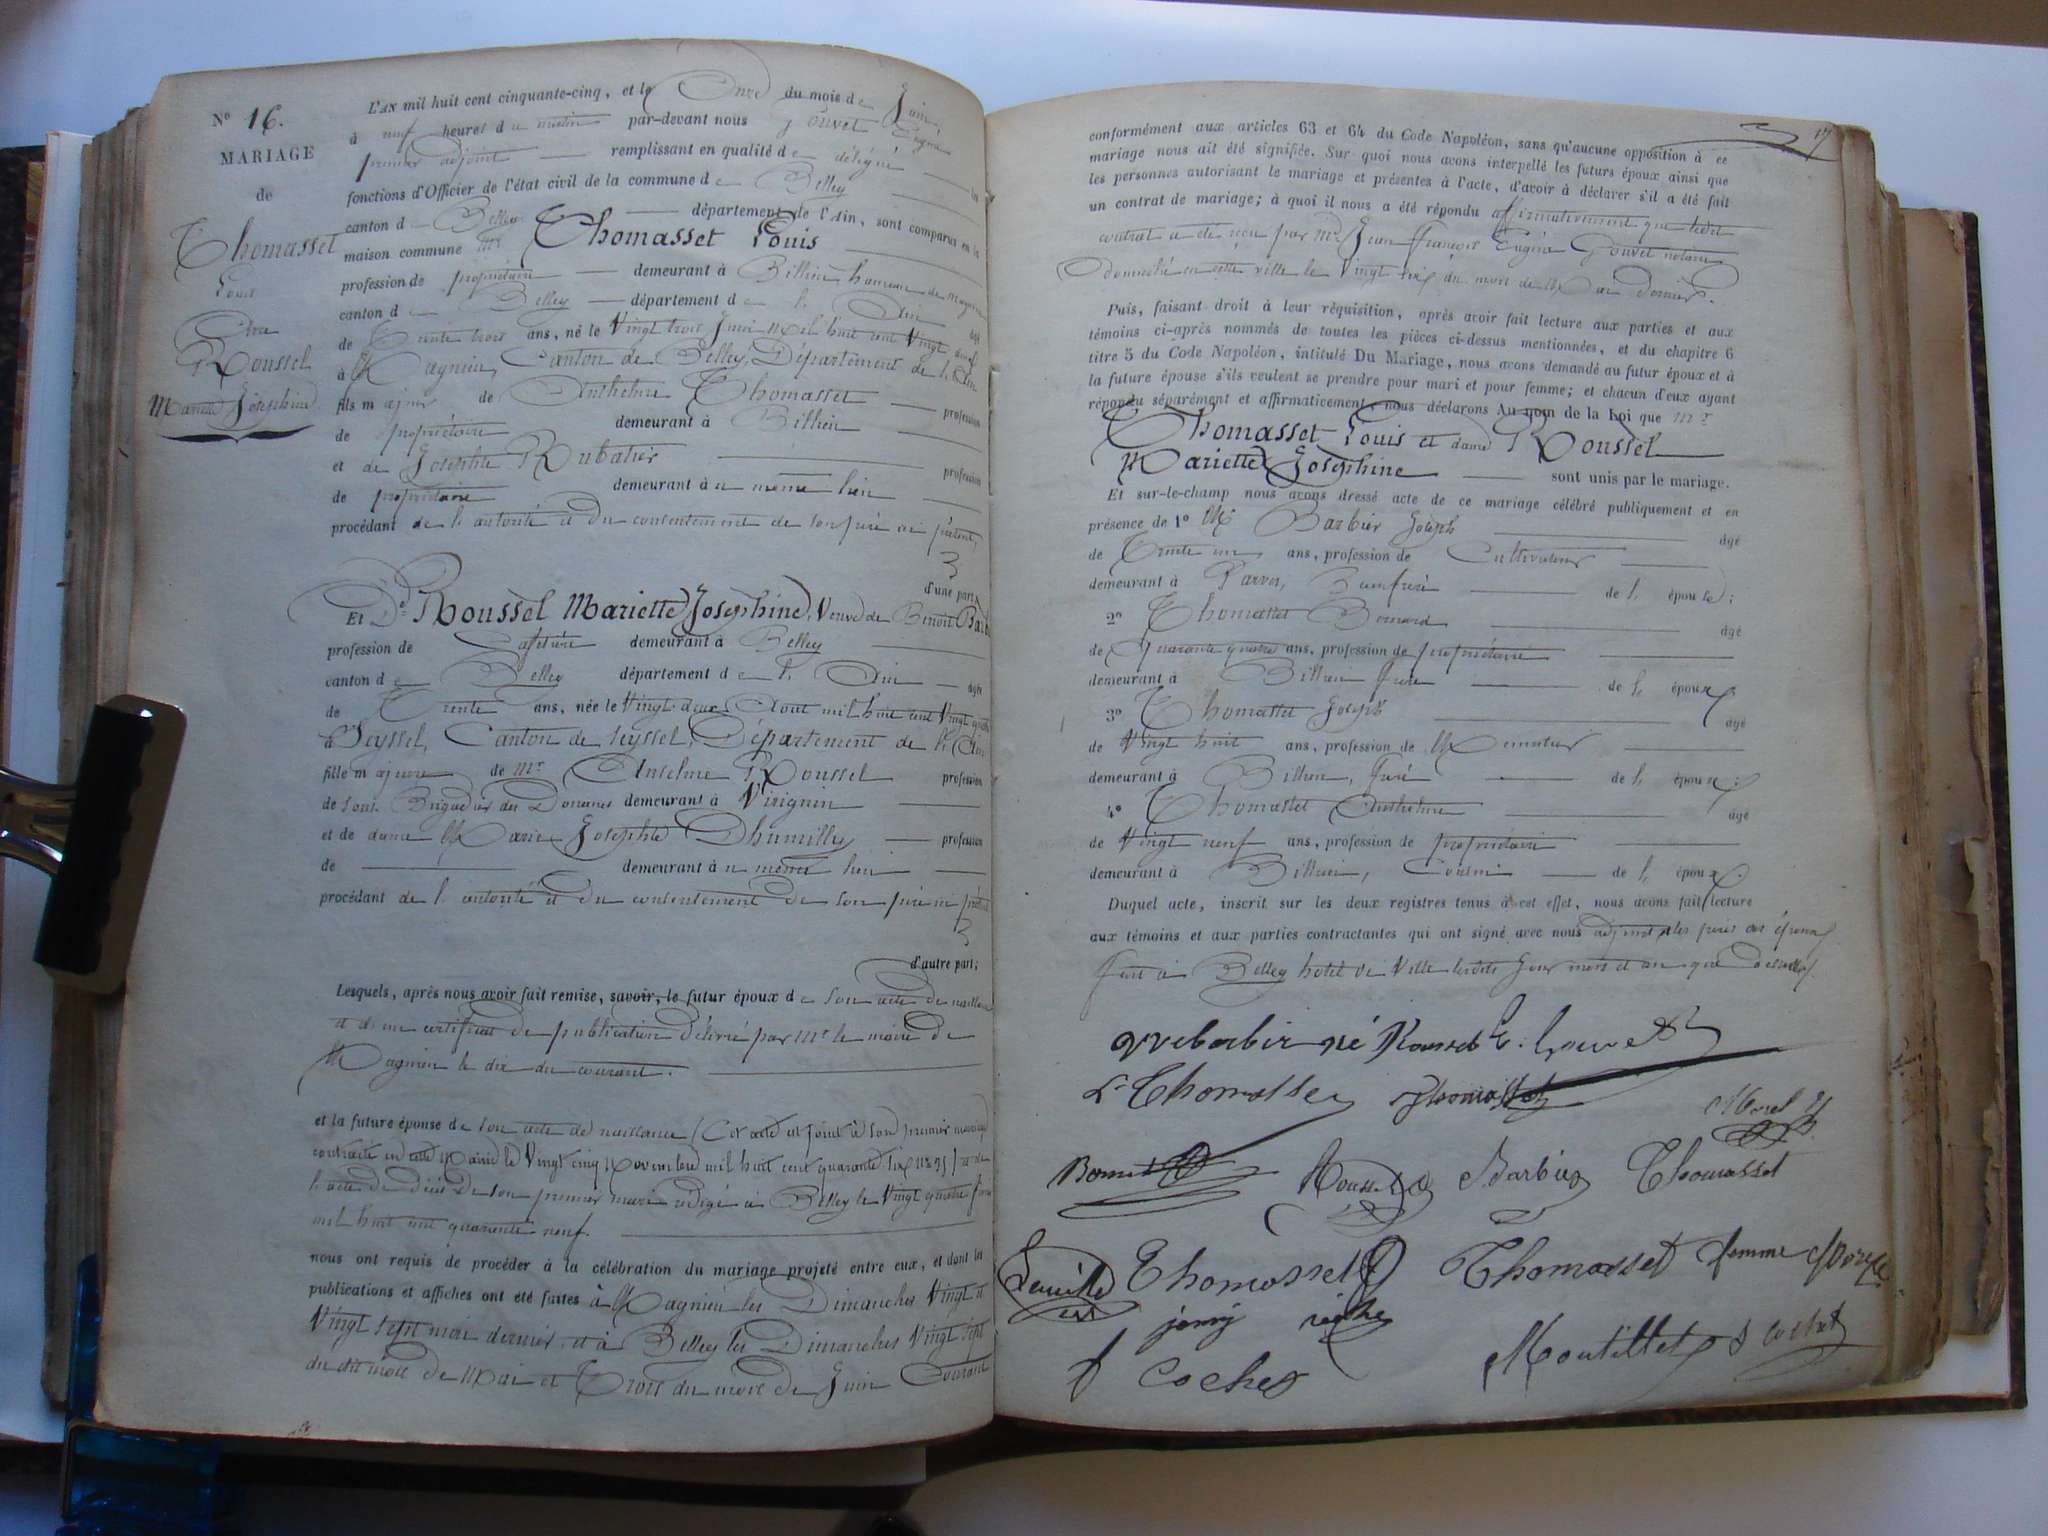 N° 16.
MARIAGE
de
Thomasset
Louis
Et
Roussel
Mariette Josephine
L'AN mil huit cent cinquante-cinq, et le Onze du mois de Juin,
à neuf heures du matin par-devant nous Gouvet
premier adjoint remplissant en qualité de délégué les
fonctions d'Officier de l'état civil de la commune de Belley
canton de Belley département de l'Ain, sont comparus en la
maison commune Mr Thomasset Louis
profession de propriétaire demeurant à Billieu hameau de Magnieu
canton de Belley département de l'Ain âgé
de Trente trois ans, né le Vingt trois Juin mil huit cent Vingt deux
à Magnieu, Canton de Belley, Département de l'Ain
fils majeur de Anthelme Thomasset profession
de propriétaire demeurant à Billieu
et de Josephte Rubatier profession
de propriétaire demeurant au même lieu
procédant de l'autorité et du consentement de son père ici présent,
d'une part,
Et De Roussel Mariette Josephine, Veuve de Benoit Barb
profession de Cafetière demeurant à Belley
canton de Belley département de l'Ain âgée
de Trente ans, née le Vingt deux Aout mil huit cent Vingt quatre
à Seyssel, Canton de Seyssel, Département de l'Ain
fille majeure de Mr Anselme Roussel profession
de Sous Brigadier des Douanes demeurant à Virignin
et de dame Marie Josephte Dhumilly profession
de demeurant au même lieu
procédant de l'autorité et du consentement de son père ici présent
d'autre part;
Lesquels, après nous avoir fait remise, savoir, le futur époux de son acte de naissance
et d'un certificat de publication délivré par Mr le maire de
Magnieu le dix du courant.
et la future épouse de son acte de naissance (Cet acte est joint à son premier mariage
contracté en cette Mairie le Vingt cinq Novembre mil huit cent quarante six N° 25) et de
l'acte de décès de son premier mari rédigé à Belley le Vingt quatre
mil huit cent quarante neuf.
nous ont requis de procéder à la célébration du mariage projeté entre eux, et dont les
publications et affiches ont été faites à Magnieu les Dimanches Vingt et
Vingt sept mai dernier et à Belley les Dimanches Vingt sept
du dit mois de Mai et Trois du mois de Juin Courant
17
conformément aux articles 63 et 64 du Code Napoléon, sans qu'aucune opposition à ce
mariage nous ait été signifiée. Sur quoi nous avons interpellé les futurs époux ainsi que
les personnes autorisant le mariage et présentes à l'acte, d'avoir à déclarer s'il a été fait
un contrat de mariage; à quoi il nous a été répondu affirmativement que ledit
contrat a été reçu par Me Jean François Eugène Gouvet notaire
Domicilié en cette ville le Vingt six du mois de Mai dernier.
Puis, faisant droit à leur réquisition, après avoir fait lecture aux parties et aux
témoins ci-après nommés de toutes les pièces ci-dessus mentionnées, et du chapitre 6
titre 5 du Code Napoléon, intitulé Du Mariage, nous avons demandé au futur époux et à
la future épouse s'ils veulent se prendre pour mari et pour femme; et chacun d'eux ayant
répondu séparément et affirmativement, nous déclarons Au nom de la Loi que Mr
Thomasset Louis et dame Roussel
Mariette Josephine sont unis par le mariage.
Et sur-le-champ nous avons dressé acte de ce mariage célébré publiquement et en
présence de 1° Mr Barbier Joseph âgé
de Trente un ans, profession de Cultivateur
demeurant à Parves, Beaufrère de l'épouse;
2° Thomasset Bernard âgé
de Quarante quatre ans, profession de propriétaire
demeurant à Billieu frère de l'époux;
3° Thomasset Joseph âgé
de Vingt huit ans, profession de Menuisier
demeurant à Billieu, frère de l'époux;
4° Thomasset Anthelme âgé
de Vingt neuf ans, profession de propriétaire
demeurant à Billieu, Cousin de l'époux.
Duquel acte, inscrit sur les deux registres tenus à cet effet, nous avons fait lecture
aux témoins et aux parties contractantes qui ont signé avec nous adjoint et les pères des époux
fait à Belley hotel de Ville lesdits jour mois et an que dessus.
né Rousset E. Gouvet
L. Thomasset Thomasset Morel
Roussel Barbier Thomasset
Thomasset Thomasset femme
jeny
Cochet Moutillet Cochet